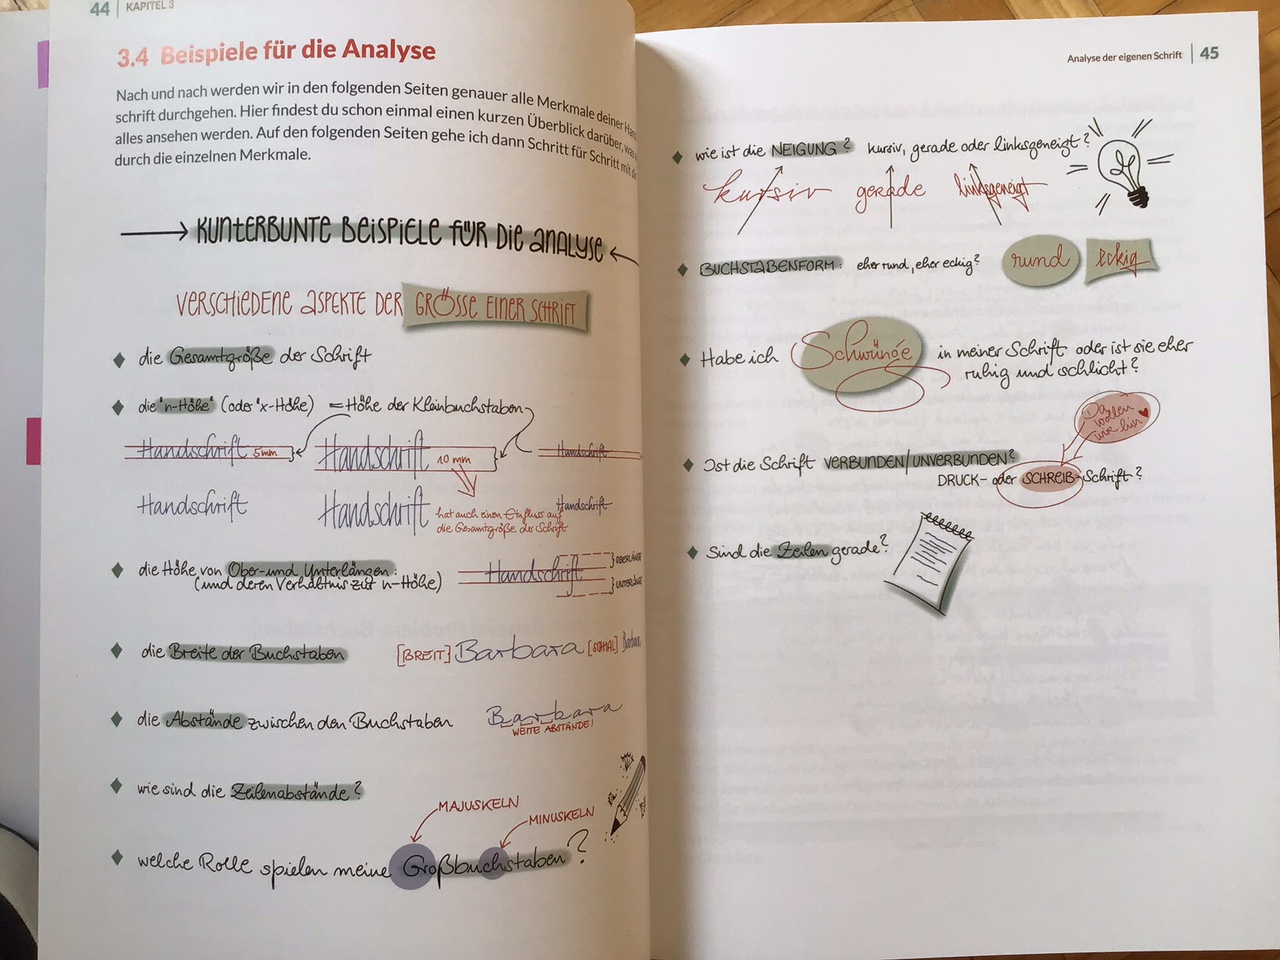 44 | KAPITEL 3
3.4 Beispiele für die Analyse
Nach und nach werden wir in den folgenden Seiten genauer alle Merkmale deiner
schrift durchgehen. Hier findest du schon einmal einen kurzen Überblick darüber,
alles ansehen werden. Auf den folgenden Seiten gehe ich dann Schritt für Schritt mit
durch die einzelnen Merkmale.
KUNTERBUNTE BEISPIELE FÜR DIE ANALYSE
VERSCHIEDENE ASPEKTE DER GRÖSSE EINER SCHRIFT
die Gesamtgröße der Schrift
die "n-Höhe" (oder "x-Höhe) = Höhe der Kleinbuchstaben
Handschrift 5mm Handschrift 10 mm Handschrift
Handschrift Handschrift Handschrift
hat auch einen Einfluss auf
die Gesamtgröße der Schrift
die Höhe von Ober- und Unterlängen:
(und deren Verhältnis zur n-Höhe)
Handschrift
OBERLÄNGE
UNTERLÄNGE
die Breite der Buchstaben [BREIT] Barbara [SCHMAL] Barbara
die Abstände zwischen den Buchstaben Barbara
WEITE ABSTÄNDE!
wie sind die Zeilenabstände?
MAJUSKELN
MINUSKELN
welche Rolle spielen meine Großbuchstaben?
Analyse der eigenen Schrift | 45
wie ist die NEIGUNG? kursiv, gerade oder linksgeneigt?
kursiv gerade linksgeneigt
BUCHSTABENFORM: eher rund, eher eckig? rund eckig
Habe ich Schwünge in meiner Schrift oder ist sie eher
ruhig und schlicht?
Da
wollen
wir hin
Ist die Schrift VERBUNDEN/UNVERBUNDEN?
DRUCK- oder SCHREIB-Schrift?
Sind die Zeilen gerade?